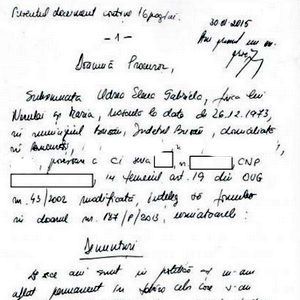 Prezentul document conține 16 pagini.
30 III 2015
- 1 -
Doamnă Procuror,
Subsemnata Udrea Elena Gabriela, fiica lui
Nicolae și Maria, născută la data de 26.12.1973,
în municipiul Buzău, Județul Buzău, domiciliată
în București,
posesoare a CI seria n CNP
, în temeiul art. 19 din OUG
nr. 43/2002 modificată, înțeleg să formulez
în dosarul nr. 187/P/2013, următoarele:
Denunțuri
De ani sunt în politică nu m-am
aflat permanent în cele care s-au